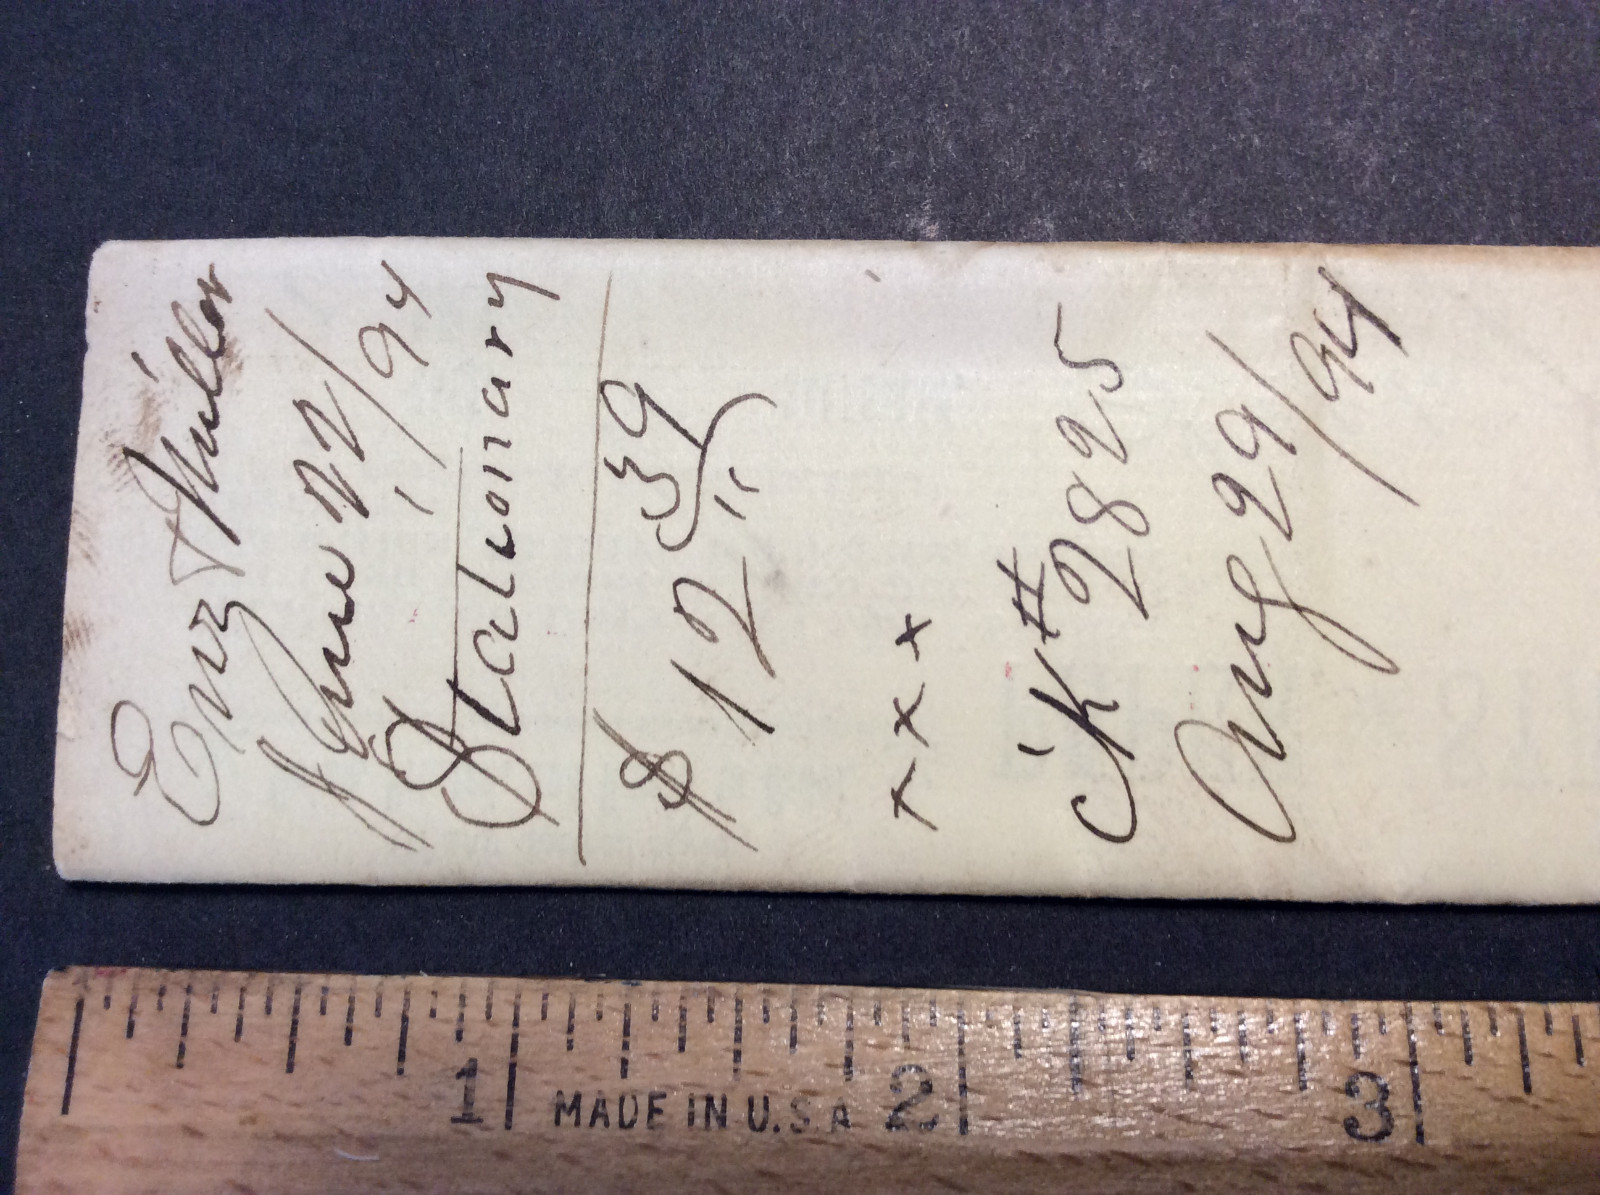 Enz & Miller
June 22/94
Stationary
$12.39
x x x
CK # 2825
Aug 29/94
1 MADE IN U.S.A 2 3